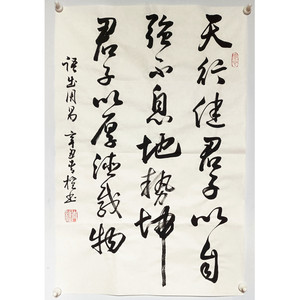 天行健君子以自
强不息地势坤
君子以厚德载物
语出周易 辛丑